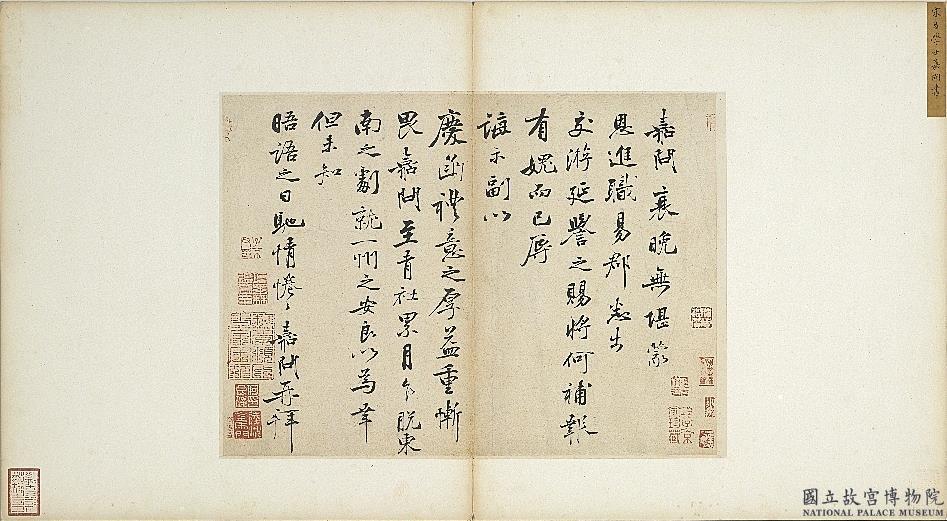 嘉問衰晚無堪蒙
恩進職易郡悉出
交游延譽之賜將何補報
有媿而已辱
誨示副以
慶函禮意之厚益重慚
畏嘉問至青社累月今脫東
南之劇就一州之安良以為幸
但未知
晤語之日馳情惓惓嘉問再拜
國立故宮博物院
NATIONAL PALACE MUSEUM